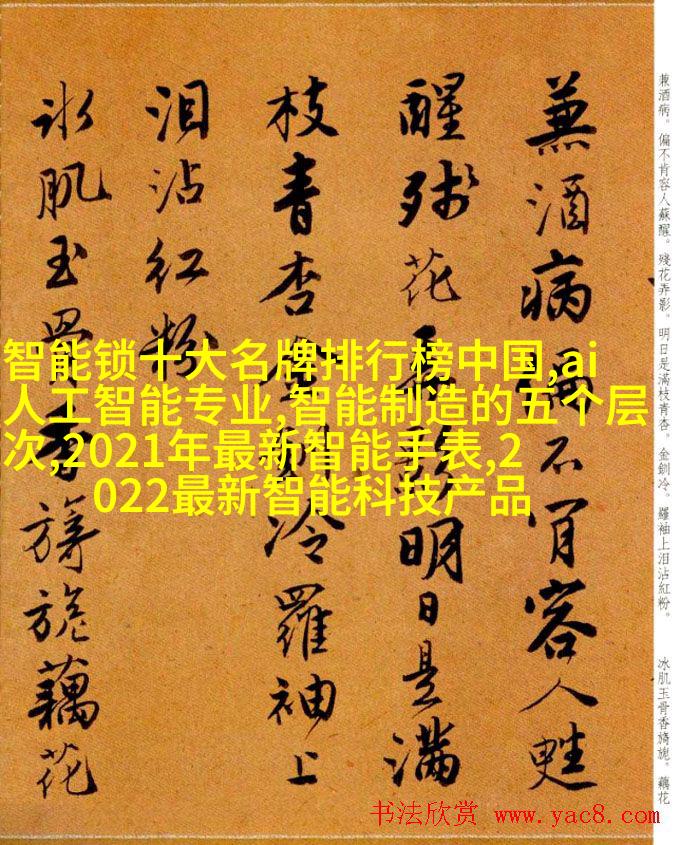 蒹酒病偏不肯容人甦
醒殘花弄影明日是滿
枝青杏金釧冷羅袖上
泪沾红粉
冰肌玉骨香旖旎藕花
兼酒病。偏不肯容人蘇醒。殘花弄影。明日是滿枝青杏。金釧冷。羅袖上泪沾紅粉。
冰肌玉骨香旖旎。藕花
智能锁十大名牌排行榜中国,ai
人工智能专业,智能制造的五个层
次,2021年最新智能手表,2
022最新智能科技产品
书法欣赏 www.yac8.com